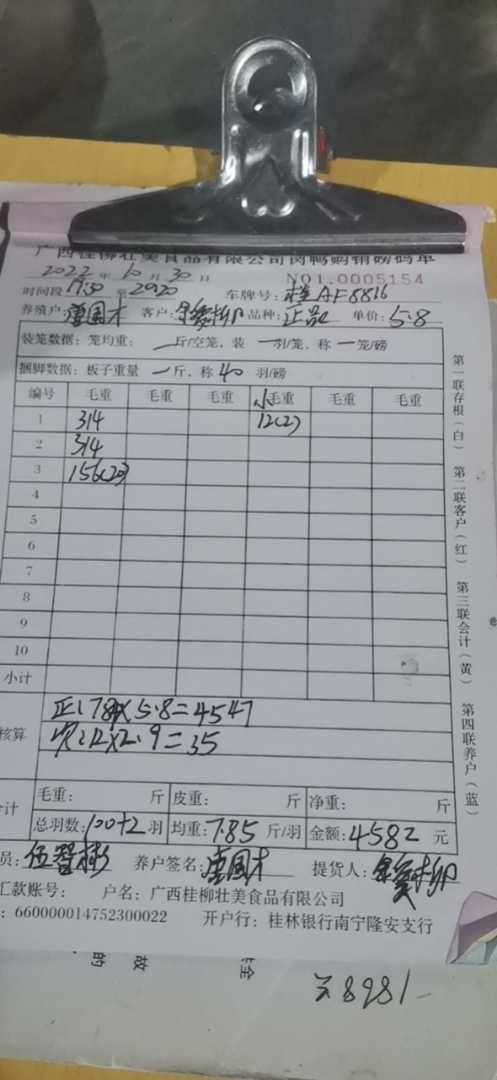 广西桂柳壮美食品有限公司肉鸭购销磅码单
2022年10月30日 NO1.0005154
时间段19:50至20:20 车牌号:桂AF8816
养殖户: 客户: 品种:正品 单价:5.8
装笼数据:笼均重:一斤/空笼,装一羽/笼,称一笼/磅
捆脚数据:板子重量一斤,称40羽/磅
编号 毛重 毛重 毛重 小毛重 毛重 毛重
1 314 12(2)
2 314
3 156(20)
4
5
6
7
8
9
10
小计
核算 正:784×5.8=4547
次:12×2.9=35
合计 毛重: 斤 皮重: 斤 净重: 斤
总羽数:100+2羽 均重:7.85斤/羽 金额:4582元
员: 养户签名: 提货人:
汇款账号: 户名:广西桂柳壮美食品有限公司
:660000014752300022 开户行:桂林银行南宁隆安支行
第一联存根(白) 第二联客户(红) 第三联会计(黄) 第四联养户(蓝)
故 的
8981-